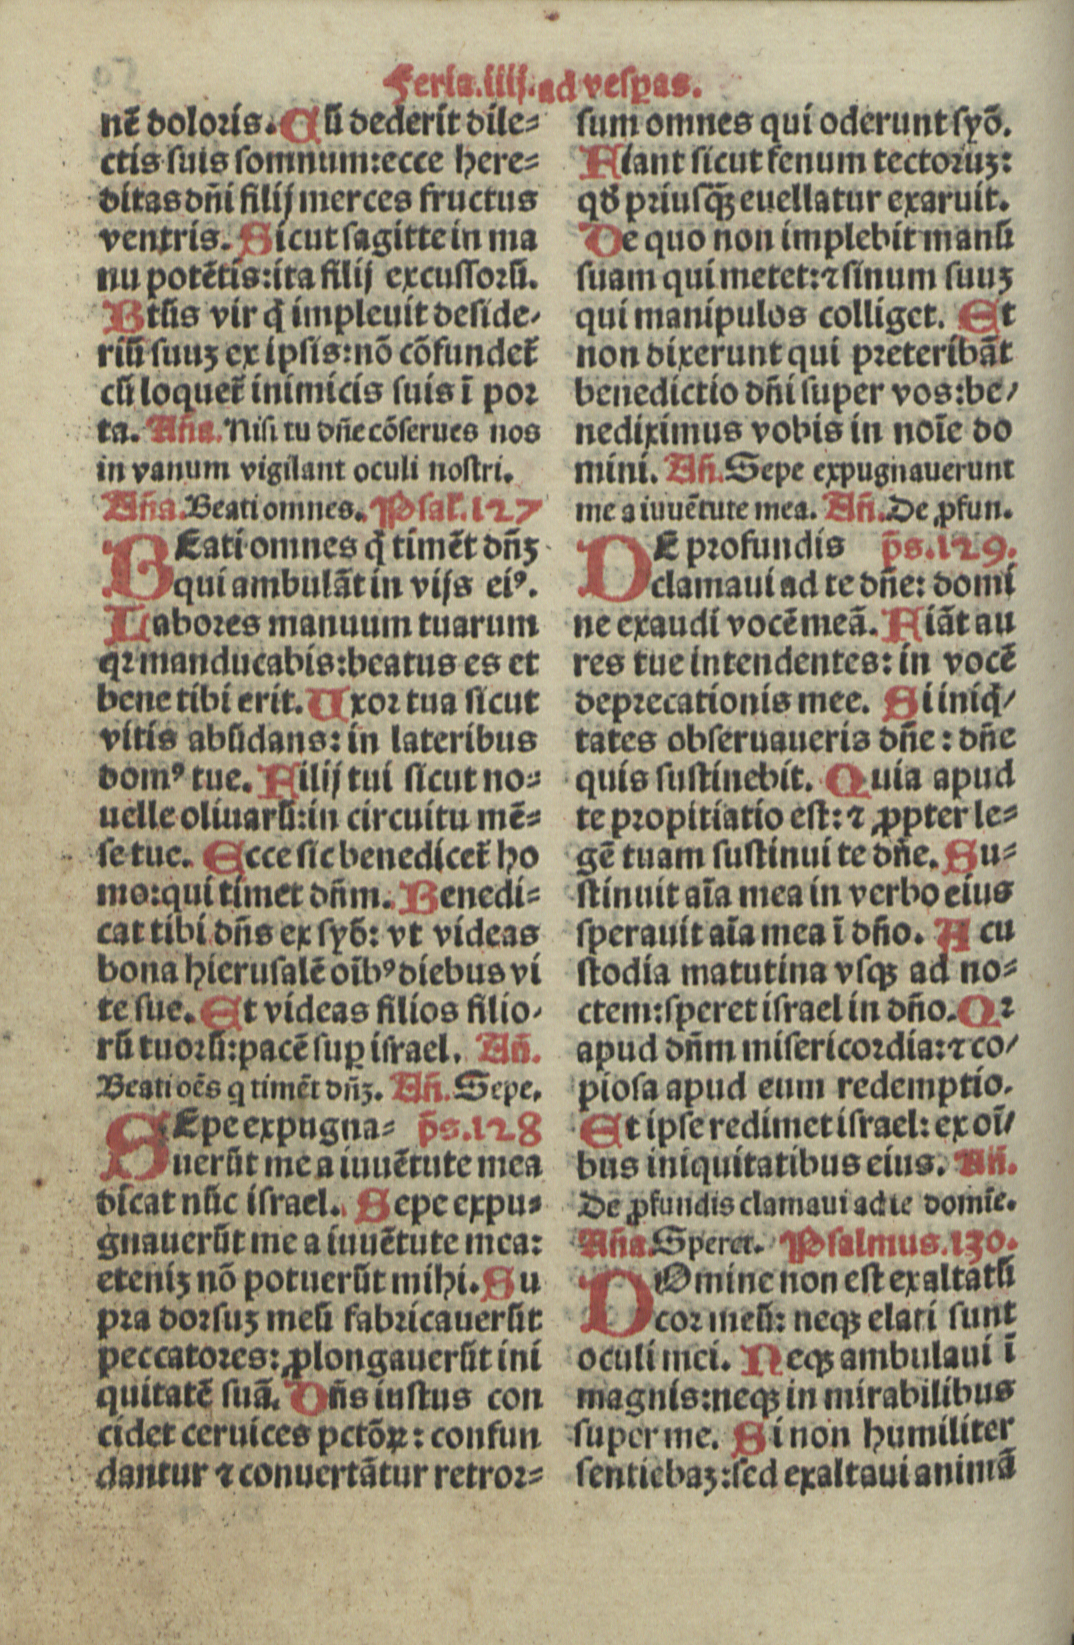 Feria.iiij.ad vesꝑas.
nē doloris. Cū dederit dile⸗
ctis suis somnum:ecce here⸗
ditas dñi filij merces fructus
ventris. Sicut sagitte in ma
nu potētis:ita filij excussorū.
Btūs vir q̇ impleuit deside⸗
riū suuꝫ ex ipsis:nō cōfundet̄
cū loquet̄ inimicis suis ī por
ta. Añа. Nisi tu dñe cōserues nos
in vanum vigilant oculi nostri.
Aña. Beati omnes. Psal̄.127
BEati omnes q̇ timēt dñꝫ
qui ambulāt in vijs eiꝰ.
Labores manuum tuarum
qꝛ manducabis:beatus es et
bene tibi erit. Uxor tua sicut
vitis abūdans: in lateribus
domꝰ tue. Filij tui sicut no⸗
uelle oliuarū:in circuitu mē⸗
se tue. Ecce sic benedicet̄ ho
mo:qui timet dñm. Benedi⸗
cat tibi dñs ex syō: vt videas
bona hierusalē oībꝰ diebus vi
te sue. Et videas filios filio⸗
rū tuorū:pacē suꝑ israel. Añ.
Beati oēs q timēt dñꝫ. Añ. Sepe.
SEpe expugna⸗ p̄s.128
uerūt me a iuuētute mea
dīcat nūc israel. Sepe expu⸗
gnauerūt me a iuuētute mea:
eteniꝫ nō potuerūt mihi. Su
pra dorsuꝫ meū fabricauerūt
peccatores: ꝓlongauerūt ini
quitatē suā. Dñs iustus con
cidet ceruices pctōꝝ: confun
dantur ⁊ conuertātur retror⸗
sum omnes qui oderunt syō.
Fiant sicut fenum tectoruꝫ:
qḋ priusꝙ̄ euellatur exaruit.
De quo non impleuit manū
suam qui metet:⁊ sinum suuꝫ
qui manipulos colliget. Et
non dixerunt qui preteribāt
benedictio dñi super vos:be⸗
nediximus vobis in noīe do
mini. Añ. Sepe expugnauerunt
me a iuuētute mea. Añ. De ꝓfun.
DE profundis p̄s.129.
clamaui ad te dñe: domi
ne exaudi vocē meā. Fiāt au
res tue intendentes: in vocē
deprecationis mee. Si iniq̇⸗
tates obseruaueris dñe: dñe
quis sustinebit. Quia apud
te propitiatio est: ⁊ ꝓpter le⸗
gē tuam sustinui te dñe. Su⸗
stinuit aīa mea in verbo eius
sperauit aīa mea ī dño. A cu
stodia matutina vsqꝫ ad no⸗
ctem:speret israel in dño. Qꝛ
apud dñm misericordia:⁊ co⸗
piosa apud eum redemptio.
Et ipse redimet israel: ex oī⸗
bus iniquitatibus eius. Añ.
De ꝓfundis clamaui ad te domīe.
Aña. Speret. Psalmus.130.
DOmine non est exaltatū
cor meū: neqꝫ elati sunt
oculi mei. Neqꝫ ambulaui ī
magnis:neqꝫ in mirabilibus
super me. Si non humiliter
sentiebaꝫ:sed exaltaui animā